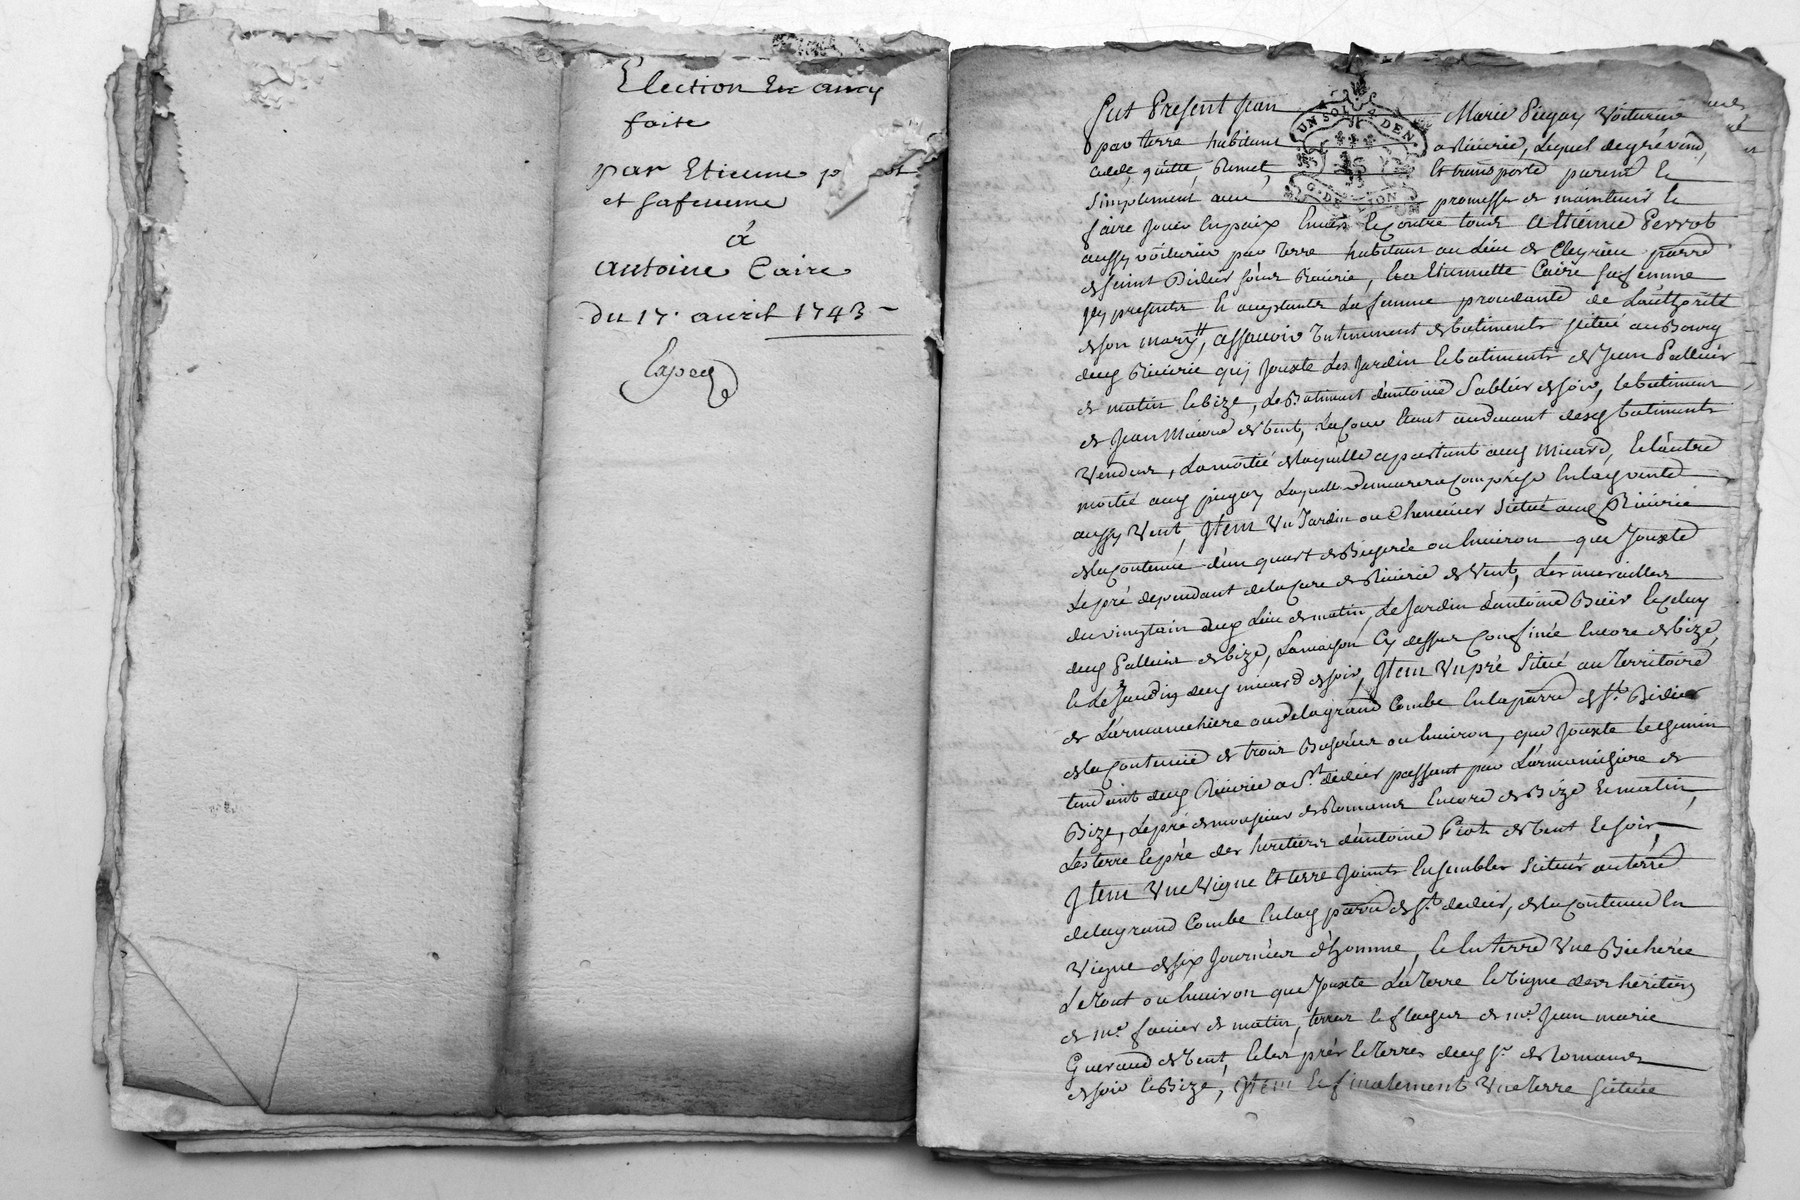 Election En amy
faite
par Etienne p
et sa femme
à
antoine Caire
du 17. avril 1743
Expec
Fut Present Jean Marie Pugay Voiturier
par terre habitant a Riverie, Lequel de gré vend,
cedde, quitte, Remet, Et transporte purem.t Et
Simplement avec promesse de maintenir Et
faire Jouir En paix Envers Et contre tous A Etienne Perrot
aussy voiturier par Terre habitant au Lieu de Cleyrieu parr.e
de Saint Didier sous Riverie, Et a Etiennette Caire sa femme
icy presents Et acceptants La femme procedante de L'authorité
de son mary, assavoir Un tenement de batiments scitué au Bourg
dud Riverie quy Jouxte Les Jardin Et batiments de Jean Pallieir
de matin Et bize, Le Batiment d'antoine Sablier de soir, Le batiment
de Jean Micard de vent, La Cour Etant au devant desd batiments
Vendus, La moitié de laquelle apartient aud Micard, Et L'autre
moitié aud pugay Laquelle demeurera Comprise En la p vente
aussy Vent, Item Un Jardin ou Chenevier Scitué aud Riverie
de la Contenue d'un quart de Bicherée ou Environ que Jouxte
Le pré dependant de la Cure de Riverie de Vent, Les murailles
du vingtain dud Lieu de matin, Le Jardin d'antoine Et Celuy
dud Pallieir de bize, La maison Cy dessus Confinée Encore de bize,
Et Le Jardin dud micard de soir, Item Un pré Scitué au Territoire
de L'armanchiere ou de la grand Combe En la parr.e de S.t Didier
de la Contenue de trois Bicherées ou Environ, que Jouxte Le Chemin
tendant dud Riverie a S.t didier passant par L'armanchiere de
Bize, Le pré de monsieur de Romanes Encore de Bize Et matin,
Les terre Et pré des heritiers d'antoine Piot de vent Et soir,
Item Une Vigne Et terre Joints Ensembles Scitués au terr.e
de la grand Combe En lad parr.e de S.t didier, de la Contenue En
Vigne de six Journées d'homme, Et En terre Une Bicherée
Le tout ou Environ que Jouxte Les Terre Et Vigne des heritiers
de m.e favier de matin, terres Et de m.e Jean marie
Gueraud de vent, Et Les prés Et terres dud S.r de Romanes
de soir Et Bize, Item Et finalement Une Terre Scituée